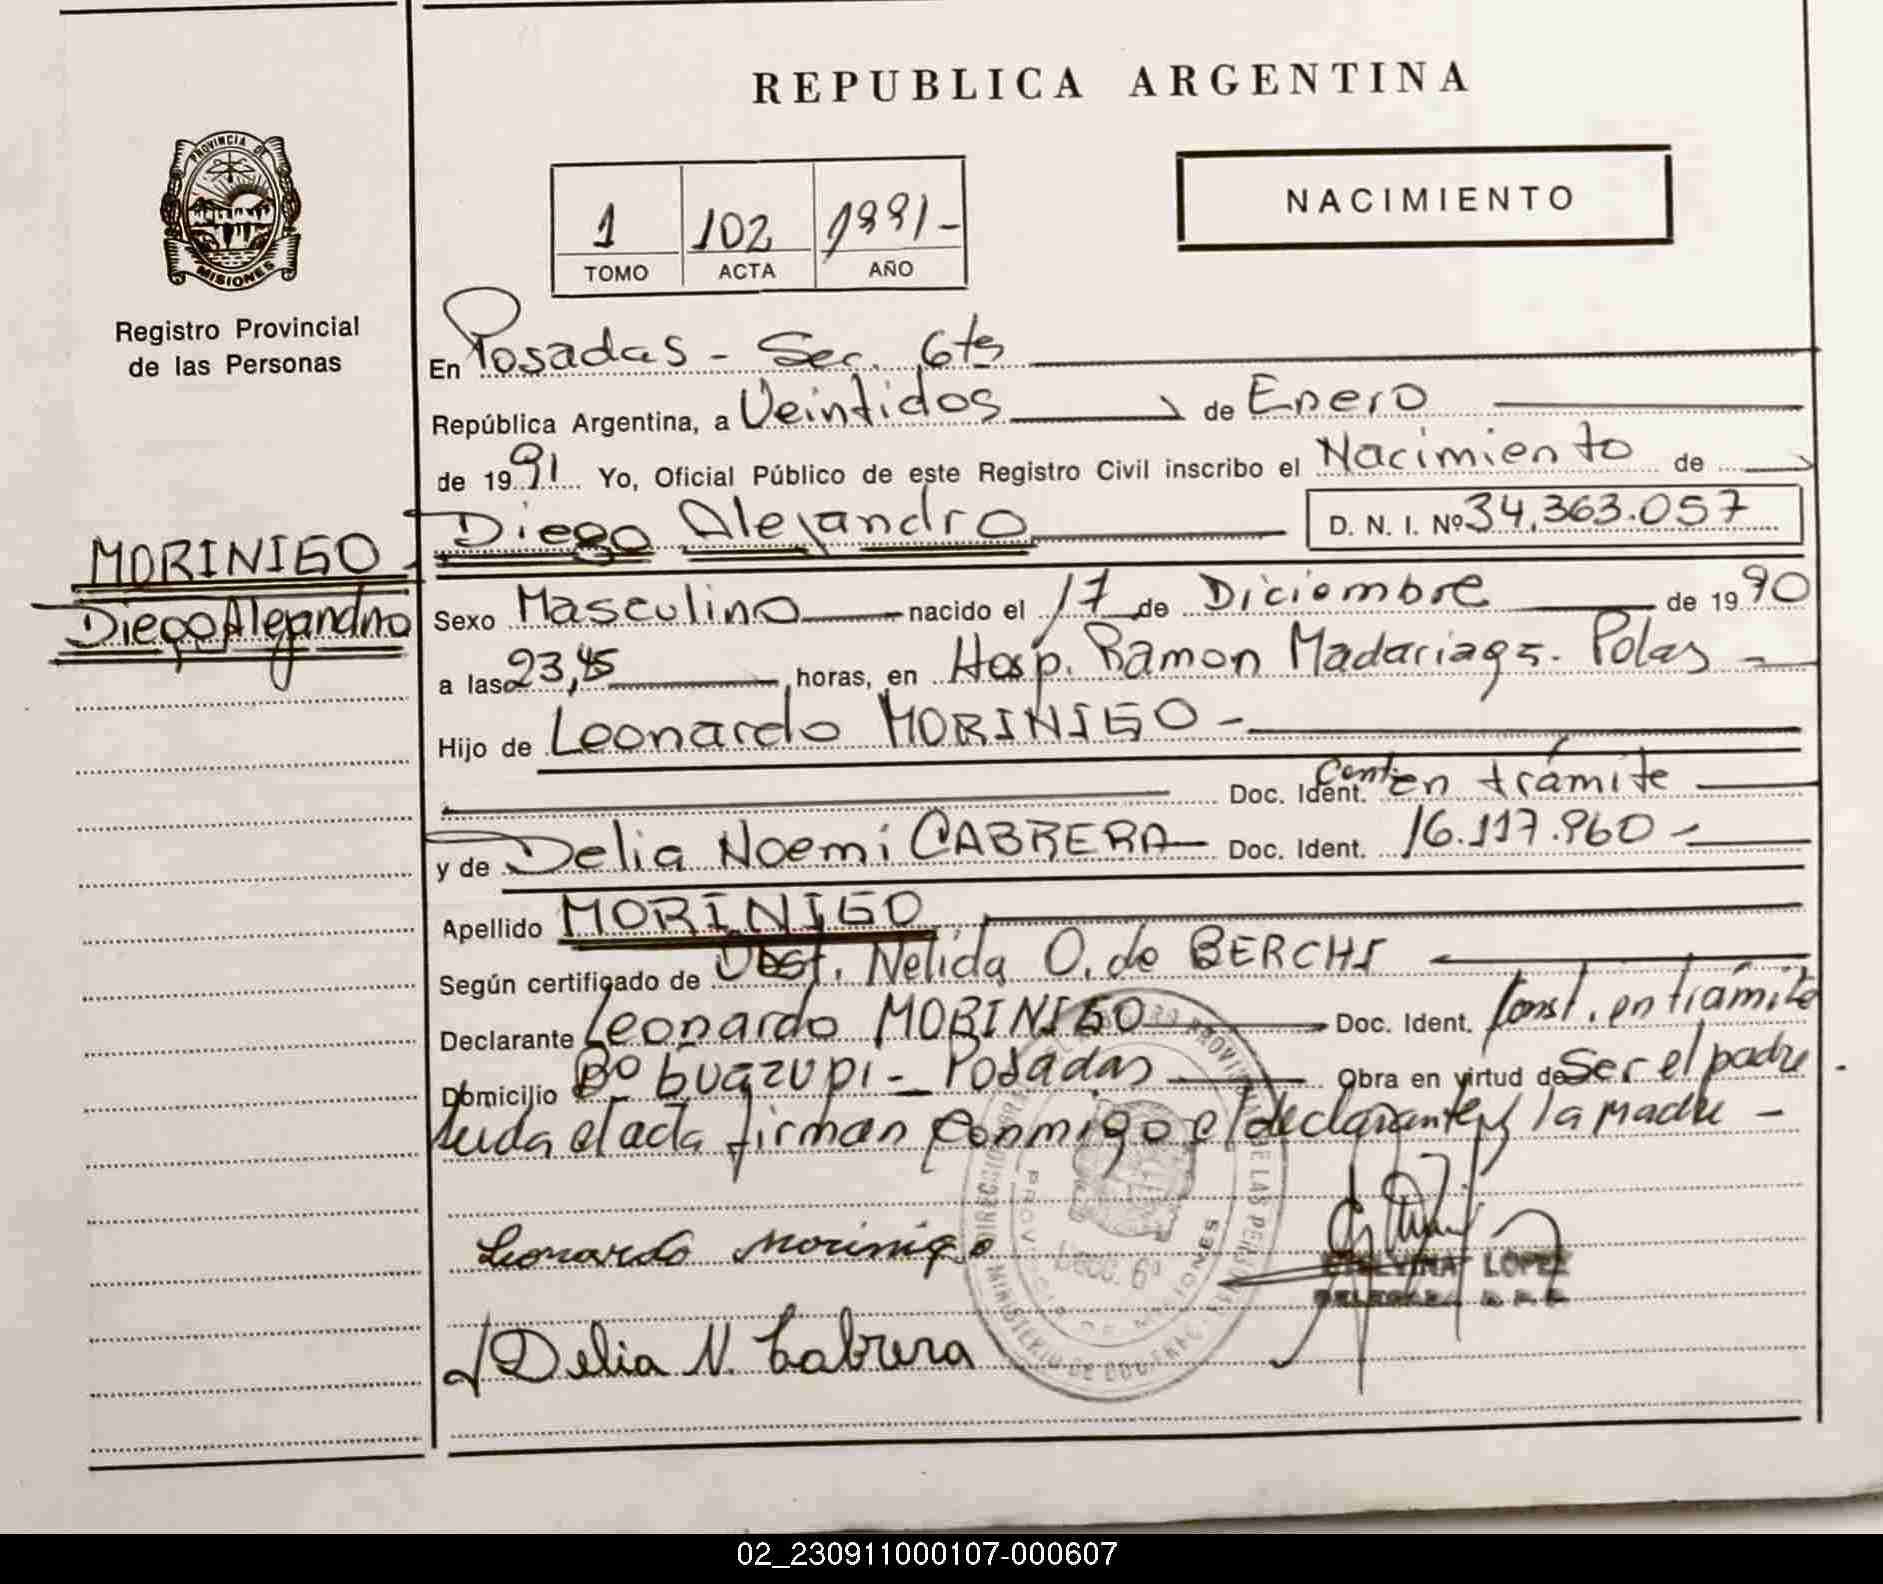 REPUBLICA ARGENTINA
NACIMIENTO
1 102 1991-
TOMO ACTA AÑO
PROVINCIA DE
MISIONES
Registro Provincial
de las Personas
En Posadas - Sec. 6ta
República Argentina, a Veintidos de Enero
de 1991 Yo, Oficial Público de este Registro Civil inscribo el Nacimiento de
MORINIGO - Diego Alejandro D. N. I. Nº 34.363.057
Diego Alejandro
Sexo Masculino nacido el 17 de Diciembre de 1990
a las 23,45 horas, en Hosp. Ramon Madariaga. Pdas -
Hijo de Leonardo MORINIGO -
Doc. Ident. Const. en trámite
y de Delia Noemi CABRERA Doc. Ident. 16.117.960 -
Apellido MORINIGO
Según certificado de Obst. Nelida O. de BERCHI
Declarante Leonardo MORINIGO Doc. Ident. Const. en trámite
Domicilio Bº Guazupi - Posadas Obra en virtud de Ser el padre.
Leida el acta firman conmigo el declarante y la madre -
Leonardo Morinigo
LOPEZ
Delia N. Cabrera
02_230911000107-000607